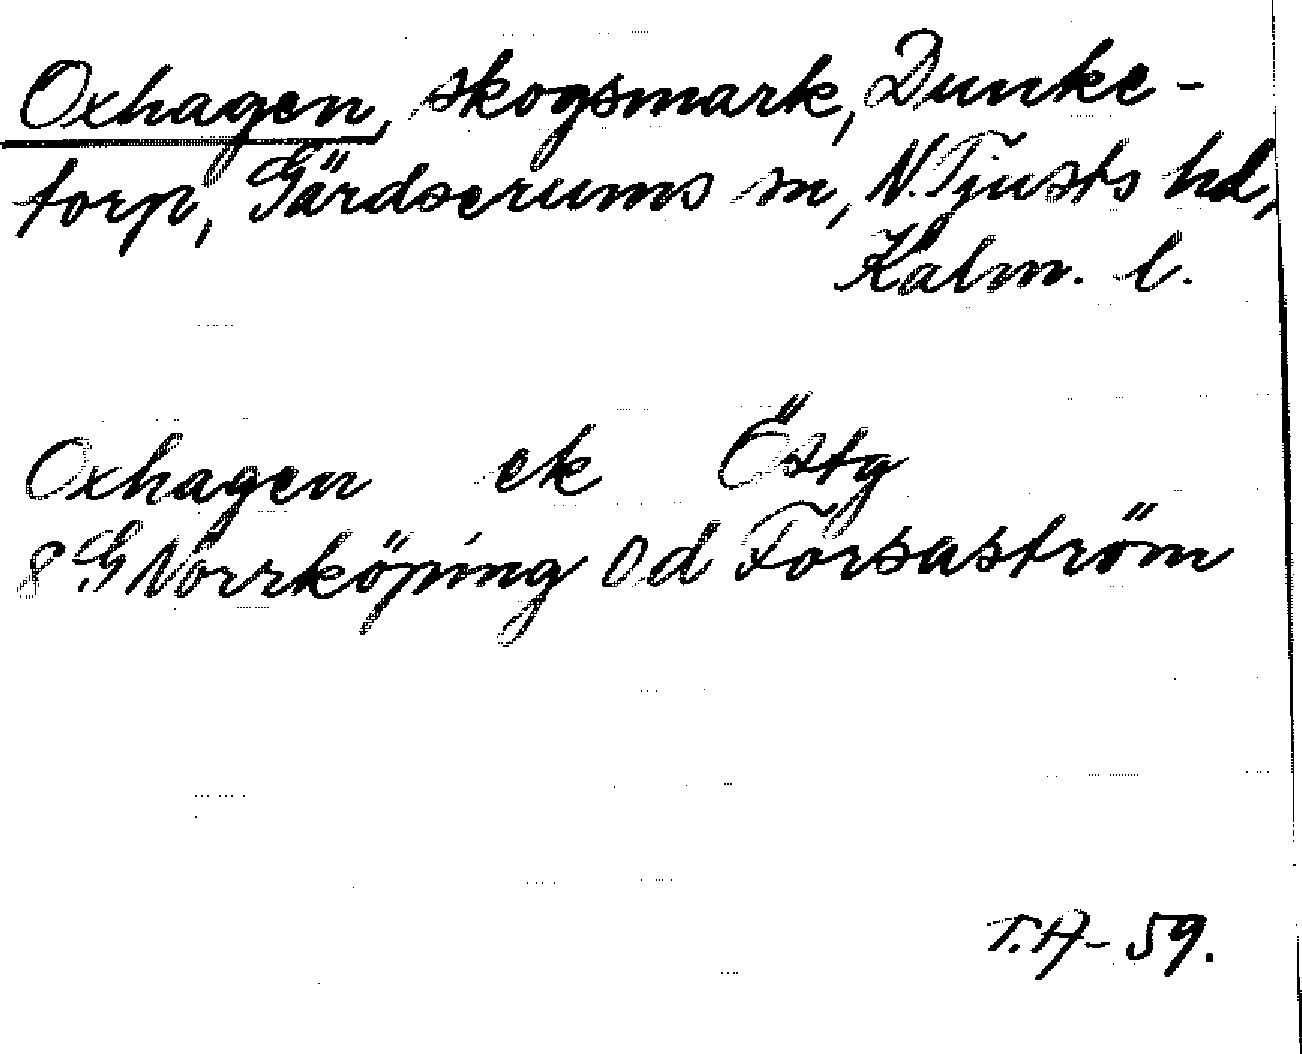 Oxhagen, skogsmark, Dunke-
torp, Gärdserums sn, N. Tjusts hd,
Kalm. l.
Oxhagen ek Östg
8 G Norrköping 0d Forsaström
T.A-59.